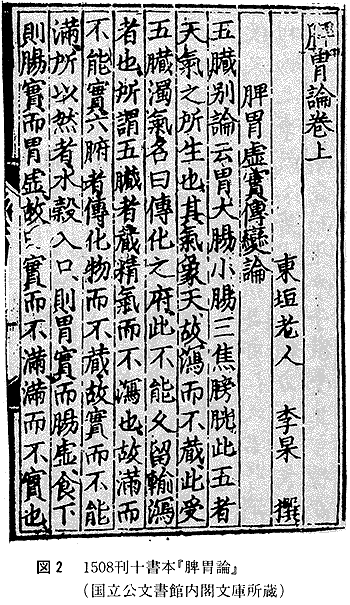 脾胃論卷上
東垣老人 李杲 撰
脾胃虛實傳變論
五臟别論云胃大腸小腸三焦膀胱此五者
天氣之所生也其氣象天故瀉而不藏此受
五臟濁氣名曰傳化之府此不能久留輸瀉
者也所謂五臟者藏精氣而不瀉也故滿而
不能實六腑者傳化物而不藏故實而不能
滿所以然者水穀入口則胃實而腸虛食下
則腸實而胃虛故 實而不滿滿而不實也
図2 1508刊十書本『脾胃論』
(国立公文書館内閣文庫所蔵)